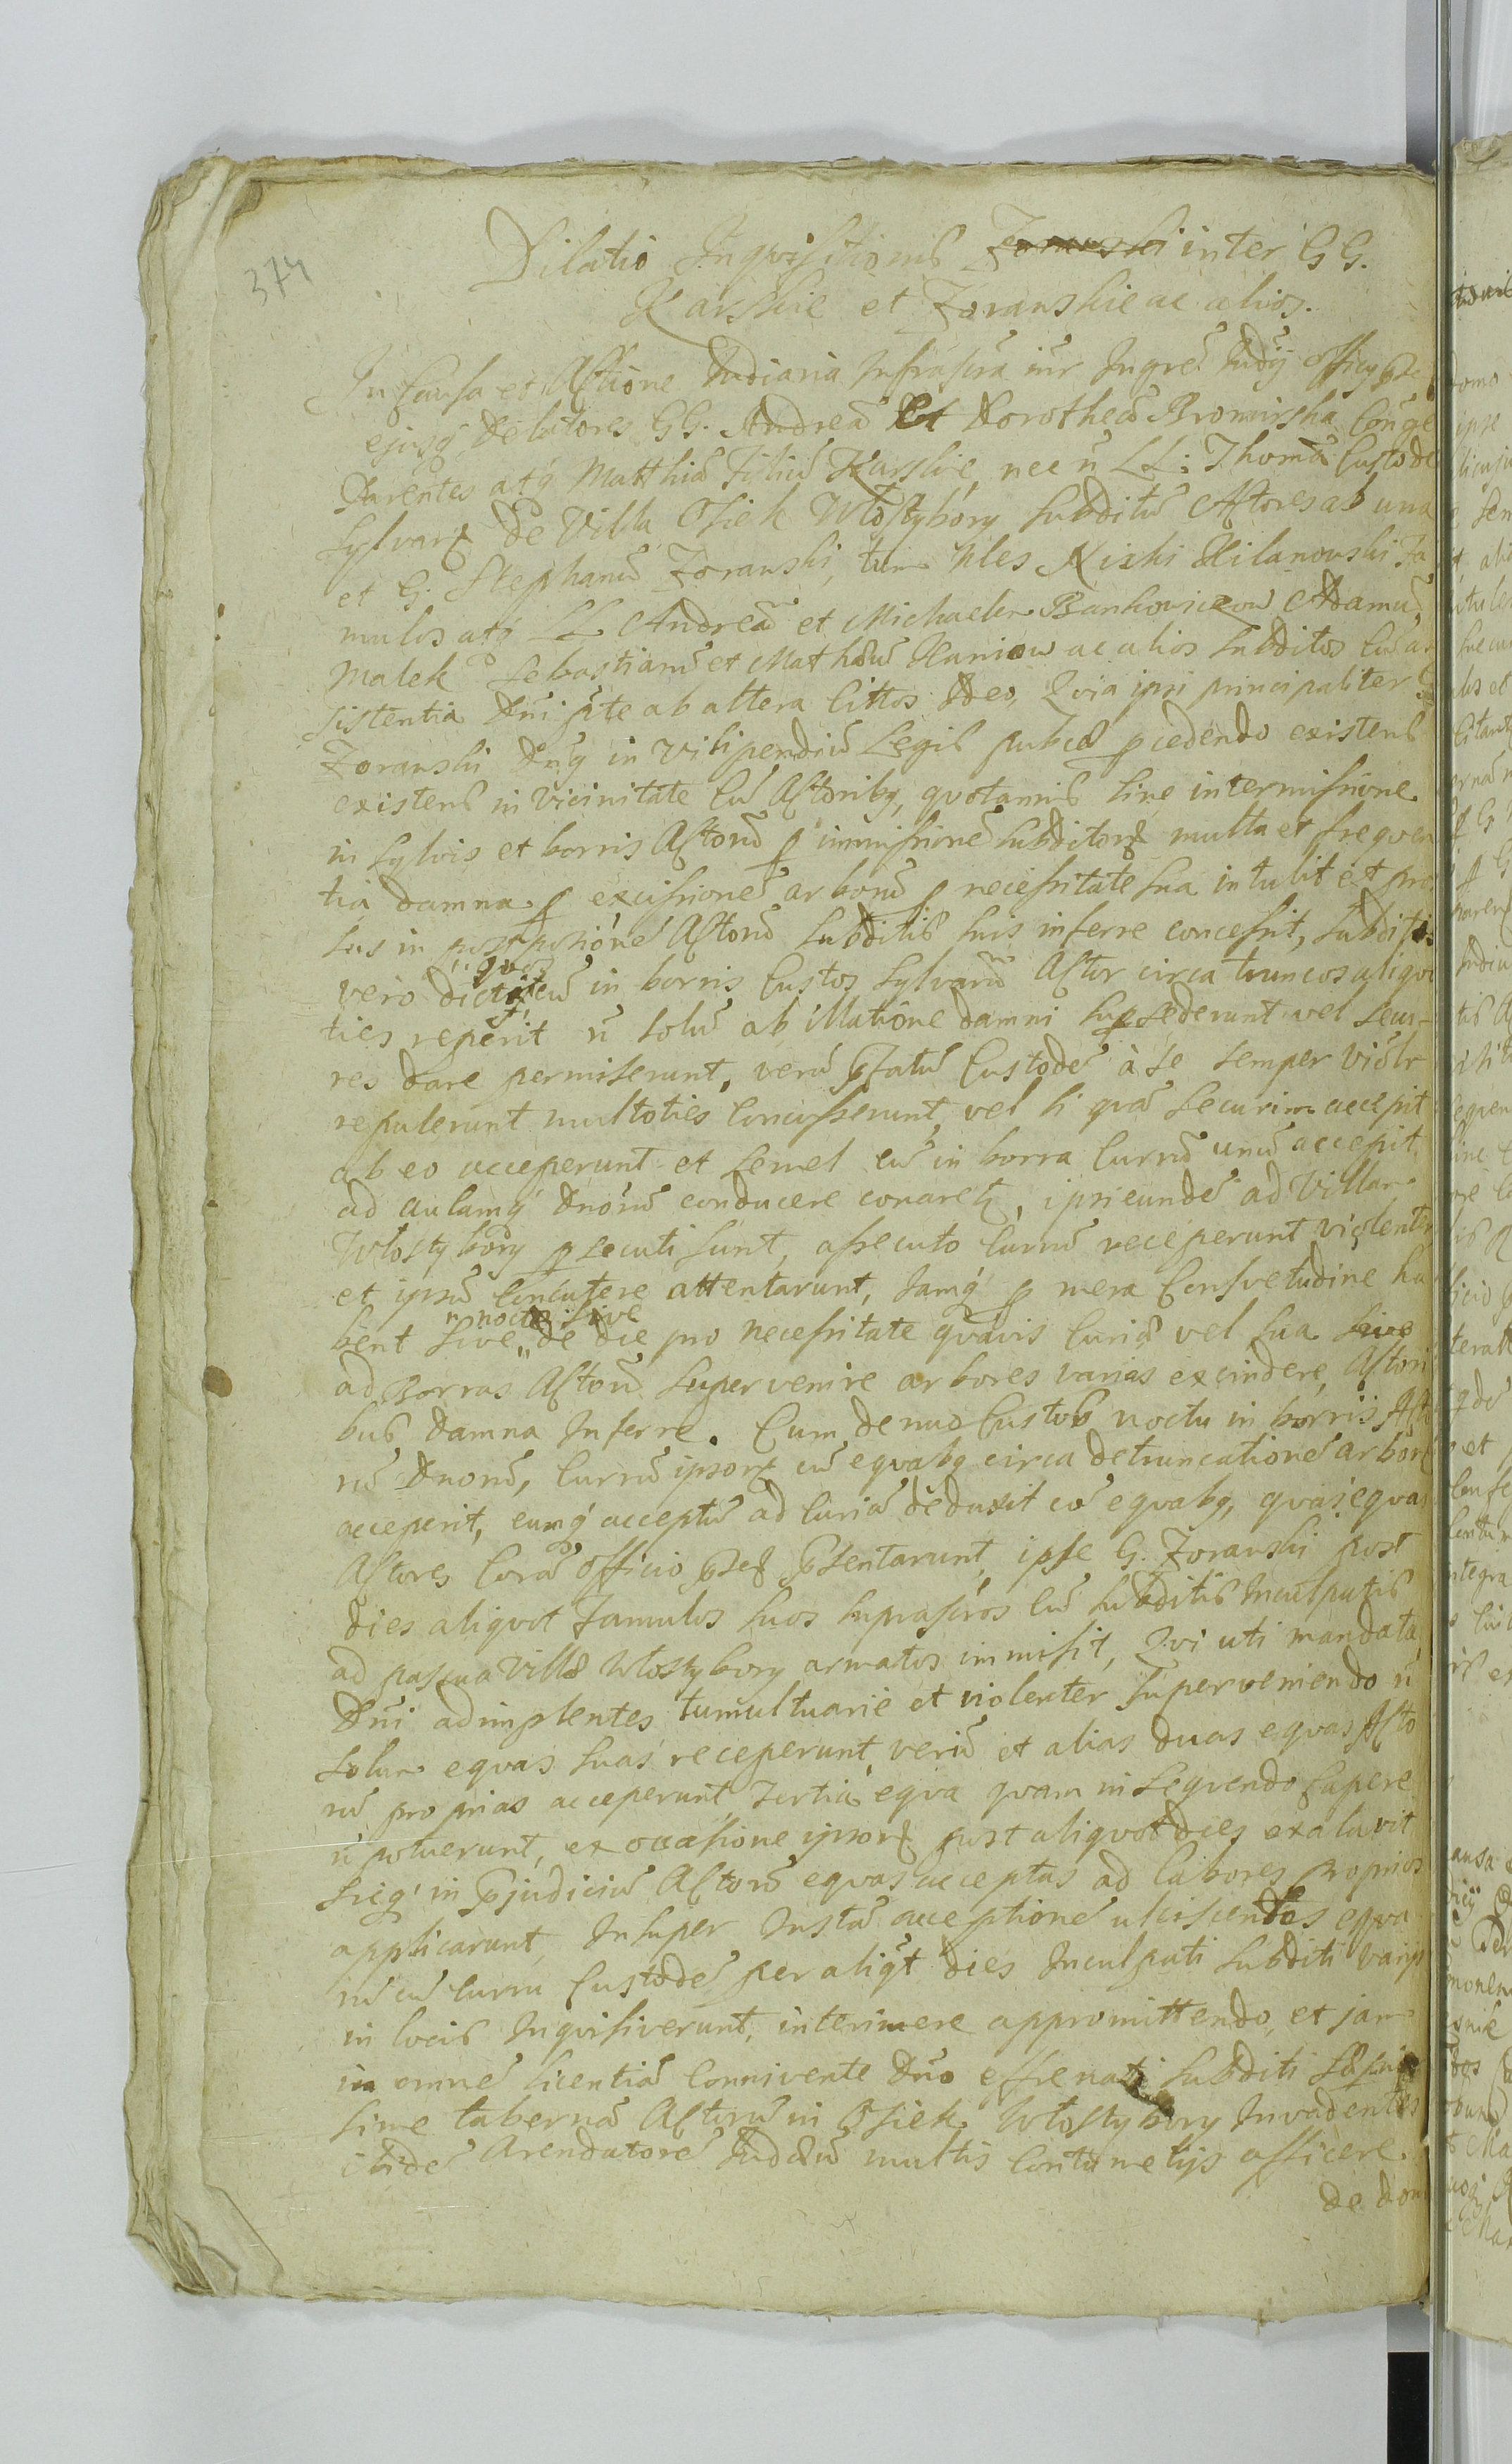 374
Dilatio Inqvisitionis Zoranski inter GG.
Karskie et Zoranskie ac alios.
In Causa et Actione Iudiaria Infrascra inr Ingre Iudij officy
ejusq Delatores GG. Andreā Et Dorotheā Bromirska Conge
Parentes atq Matthiā Filiū Karskie, nec n̄ LL: Thomā Custode
Sylvarū de Villa Osiek Włostybory Subditū Actores ab una
et G. Stephanū Zoranski, tum Nles Nicki Kilanowski Fa
mulos atq LL Andreā et Michaelem Bankowiczow Adamū
Malek Sebastianū et Mathæū Kaniow ac alios Subditos Cū as
sistentia Dni pte ab altera Cittos Deo, Qvia ipsi principaliter G
Zoranski Dnq in Vilipendiū Legis publcæ pcedendo existens
existens in Vicinitate Cū Actoribq, qvotannis sine intermissione
in Sylvis et borris Actorū p immissionē Subditorū multa et freqven
tia damna p excissionē arborū p necessitate sua intulit et pro
sus in postposionē Actorū Subditis suis inferre concessit, Subditos
vero dictos qvos cū in borris Custos Sylvarū Actor circa truncos aliqvo
ties reperit n̄ solū ab illatione damni supsederunt vel secu-
res dare permiserunt, verū pfatū Custodē à se semper violr
repulerunt multoties Concusserunt, vel si qvā Securim accepit
ab eo acceperunt et semel cū in borra Currū unū accepit
ad aulamq Dnorū conducere conaretq, ipsi eundē ad Villam
Włostybory psecuti sunt, assecuto Currū receperunt violenter
et ipsū Concutere attentarunt, Iamq p mera Consvetudine ha
bent sive nocte sive de die pro necessitate qvāvis Curiæ vel sua sive
ad Borras Actorū supervenire arbores varias excindere, Actori
bus damna Inferre. Cum denuo Custos noctu in borris Acto
rū Dnorū, Currū ipsorū cū eqvabq circa detruncationē arborū
acceperit, eumq acceptū ad Curiā deduxit cū eqvabq, qvas eqvas
Actores Corā Officio psenti psentarunt, ipse G. Zoranski post
dies aliqvot Famulos suos suprascros Cū Subditis Inculpatis
ad pascua Villæ Włostybory armatos immisit, Qvi uti mandata
Dni adimplentes tumultuarie et violenter superveniendo n̄
solum eqvas suas receperunt, verū et alias duas eqvas Acto
rū proprias acceperunt, Tertia eqva qvam inseqvendo Capere
n̄ potuerunt, ex occasione ipsorū post aliqvot dies exalavit
sicq in pjudiciū Actorū eqvas acceptas ad labores proprios
applicarunt, Insuper Iustā acceptionē ulciscentes eqva
rū cū curru Custodē per aliqt dies Inculpati Subditi varijs
in locis Inqvisiverunt, interimere appromittendo, et jam
in omnē licentiā Connivente Dno effrenati Subditi
sime tabernā Actorū in Osiek Włostybory Invadentes
ibidē Arendatorē Iudæū multis Contumelijs afficere
de dom